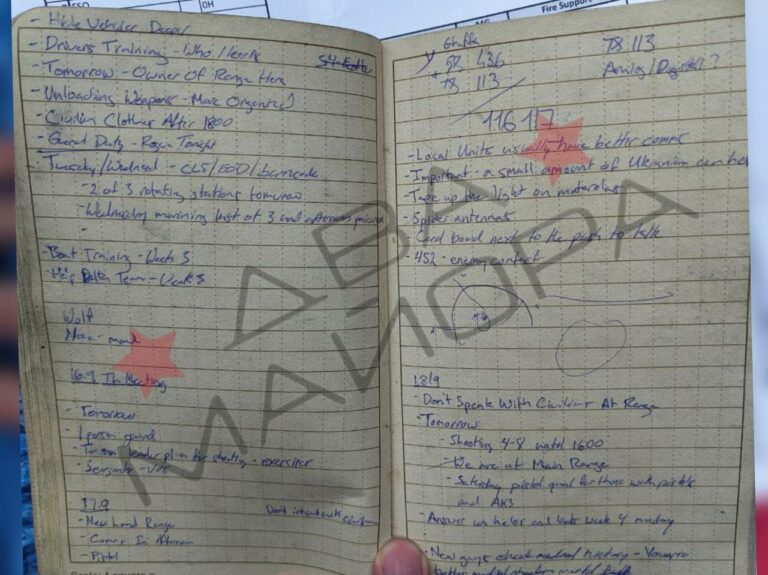 OH
- Hide Vehicles Deeper
- Drivers Training - Who / leads
- Tomorrow - Owner Of Range Here
- Unloading Weapons - More Organized
- Civilian Clothes After 1800
- Guard Duty - Rogue Tonight
- Tuesday / Wednesd - CLS/EOD/barricade
- 2 of 3 rotating stations tomorrow
- Wednesday morning last of 3 and afternoon
- Boat Training - Week 3
- Help Delta Team - Week 3
Wolf
16.9 Th Meeting
- Tomorrow
- 1 person guard
- Team leader plan for shooting - exercises
- Sergeants -
17.9
- New Land Range
- Coming In Afternoon
- Pistol
Fire Support
58 436
+ 78 113
116 117
78.113
Analog / Digital?
- Local Units usually have better comms
- Important - a small amount of Ukrainian can help
- Tape up the light on motorolas
- Spider antennas
- Card board next to the push to talk
- 452 - enemy contact
18/9
- Don't Speak With Civilians At Range
- Tomorrow
Shooting 4-8 until 1600
- We are at Main Range
- Saturday pistol qual for those with pistols
and AKs
- Answer on helos and boats week 4 monday
- New guys check medical history -
АВА МАЙОРА